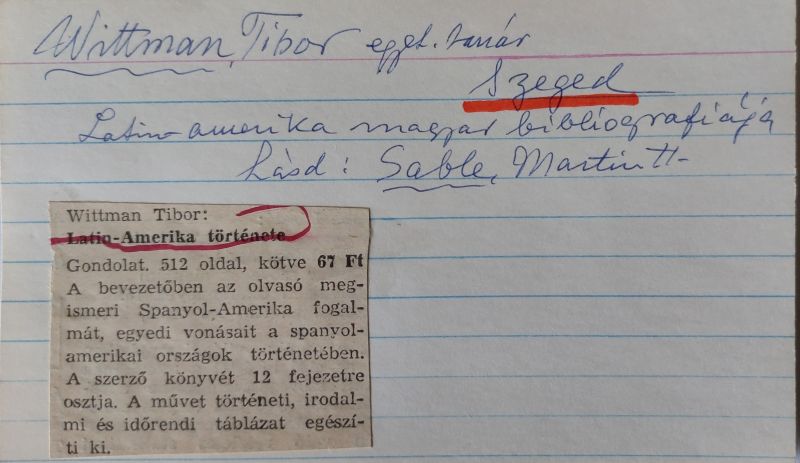 Wittman, Tibor egyet. tanár
Szeged
Latin-amerika magyar bibliografiája
Lásd: Sable, Martin H.
Wittman Tibor:
Latin-Amerika története
Gondolat. 512 oldal, kötve 67 Ft
A bevezetőben az olvasó meg-
ismeri Spanyol-Amerika fogal-
mát, egyedi vonásait a spanyol-
amerikai országok történetében.
A szerző könyvét 12 fejezetre
osztja. A művet történeti, irodal-
mi és időrendi táblázat egészí-
ti ki.